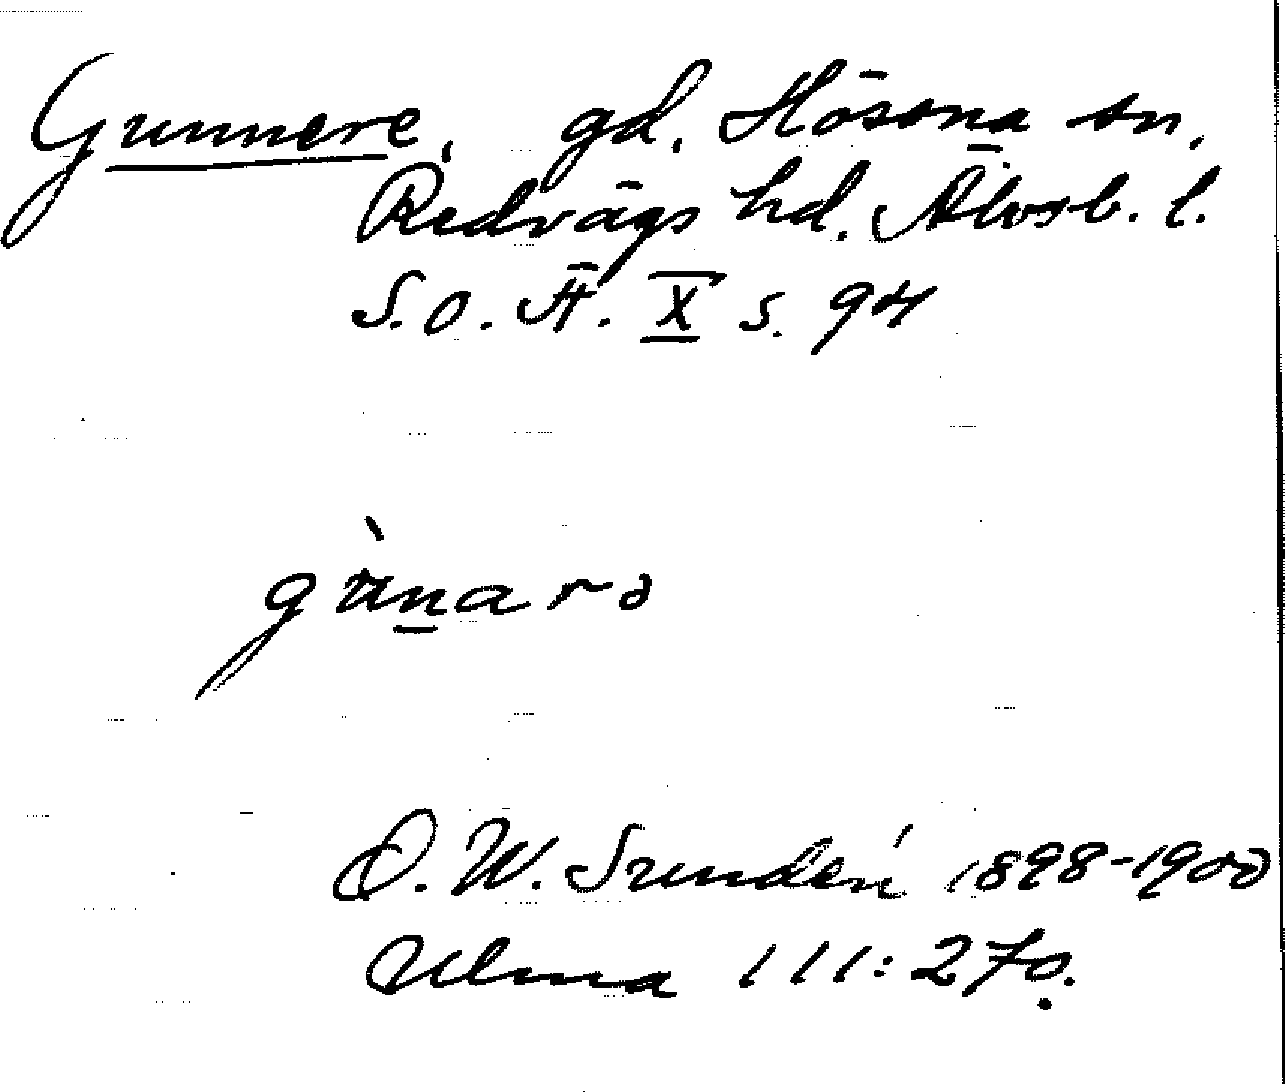 Gunnere, gd. Hössna sn.
Redvägs hd. Älvsb. l.
S.O.Ä. X s. 94
gùnarə
D. W. Sundén 1898-1900
Ulma 111:270.